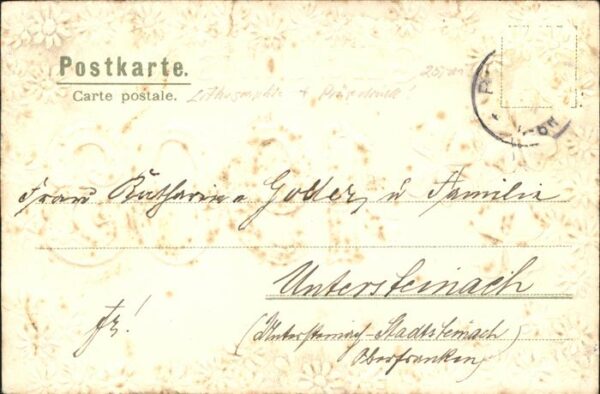 Postkarte.
Carte postale.
Lithographie + Prägedruck!
Frau Katharina Goller, u Familie
Untersteinach
Fr!
(Untersteinach-Stadtsteinach)
Oberfranken